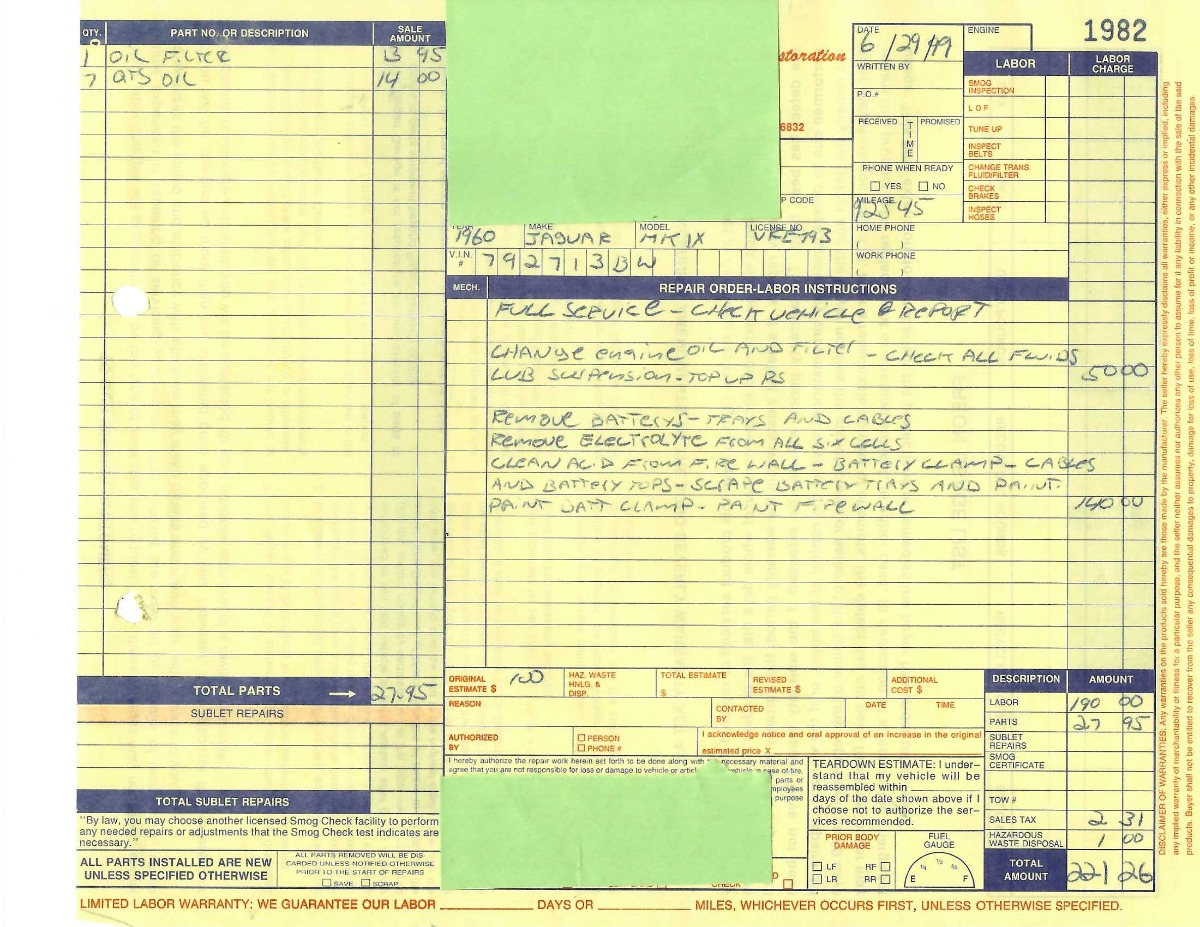 QTY. PART NO. OR DESCRIPTION SALE AMOUNT
1 OIL FILTER 13 95
7 QTS OIL 14 00
TOTAL PARTS → 27.95
SUBLET REPAIRS
TOTAL SUBLET REPAIRS
"By law, you may choose another licensed Smog Check facility to perform
any needed repairs or adjustments that the Smog Check test indicates are
necessary."
ALL PARTS INSTALLED ARE NEW
UNLESS SPECIFIED OTHERWISE
ALL PARTS REMOVED WILL BE DIS-
CARDED UNLESS NOTIFIED OTHERWISE
PRIOR TO THE START OF REPAIRS
SAVE SCRAP
storation
6832
P CODE
DATE 6/29/99
WRITTEN BY
P.O.#
RECEIVED TIME PROMISED
PHONE WHEN READY
YES NO
MILEAGE
HOME PHONE
( )
WORK PHONE
( )
ENGINE
1982
LABOR LABOR CHARGE
SMOG INSPECTION
L O F
TUNE UP
INSPECT BELTS
CHANGE TRANS. FLUID/FILTER
CHECK BRAKES
INSPECT HOSES
YEAR MAKE MODEL LICENSE NO
1960 JAGUAR MK IX VRE793
V.I.N. # 792713BW
MECH. REPAIR ORDER-LABOR INSTRUCTIONS
FULL SERVICE - CHECK VEHICLE & REPORT
CHANGE engine OIL AND FILTER - CHECK ALL FLUIDS
LUB SUSPENSION - TOP UP PS 50 00
REMOVE BATTERYS - TRAYS AND CABLES
REMOVE ELECTROLYTE FROM ALL SIX CELLS
CLEAN ACID FROM FIRE WALL - BATTERY CLAMP - CABLES
AND BATTERY TOPS - SCRAPE BATTERY TRAYS AND PAINT.
PAINT BATT CLAMP - PAINT FIREWALL 140 00
ORIGINAL ESTIMATE $ 100
HAZ. WASTE HNLG. & DISP.
TOTAL ESTIMATE $
REVISED ESTIMATE $
ADDITIONAL COST $
REASON
CONTACTED BY
DATE TIME
AUTHORIZED BY
PERSON
PHONE #
I acknowledge notice and oral approval of an increase in the original
estimated price X
I hereby authorize the repair work herein set forth to be done along with the necessary material and
agree that you are not responsible for loss or damage to vehicle or articl vehicle in case of fire,
parts or
mployees
purpose
TEARDOWN ESTIMATE: I under-
stand that my vehicle will be
reassembled within
days of the date shown above if I
choose not to authorize the ser-
vices recommended.
PRIOR BODY DAMAGE
LF RF
LR RR
FUEL GAUGE
E 1/4 1/2 3/4 F
CHECK
DESCRIPTION AMOUNT
LABOR 190 00
PARTS 27 95
SUBLET REPAIRS
SMOG CERTIFICATE
TOW #
SALES TAX 2 31
HAZARDOUS WASTE DISPOSAL 1 00
TOTAL AMOUNT 221 26
LIMITED LABOR WARRANTY: WE GUARANTEE OUR LABOR DAYS OR MILES, WHICHEVER OCCURS FIRST, UNLESS OTHERWISE SPECIFIED.
DISCLAIMER OF WARRANTIES: Any warranties on the products sold hereby are those made by the manufacturer. The seller hereby expressly disclaims all warranties, either express or implied, including
any implied warranty of merchantability or fitness for a particular purpose, and the seller neither assumes nor authorizes any other person to assume for it any liability in connection with the sale of the said
products. Buyer shall not be entitled to recover from the seller any consequential damages, damages to property, damage for loss of use, loss of time, loss of profit or income, or any other incidental damages.